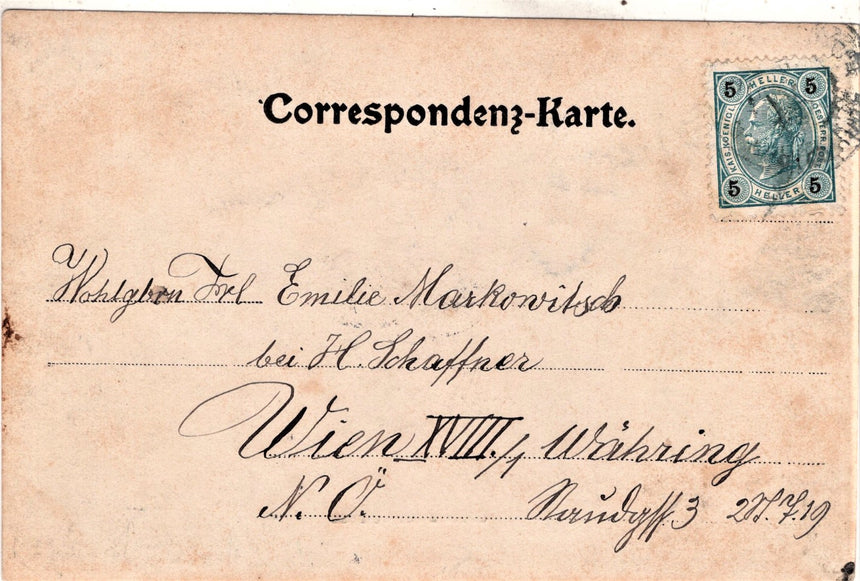 Correspondenz-Karte.
5 HELLER 5
KAIS. KOENIGL.
5 HELLER 5
Wohlgbrn Frl Emilie Markowitsch
bei H. Schaffner
Wien XVIII./1 Währing
N. Ö. Staudgss 3 2 St. 7.19